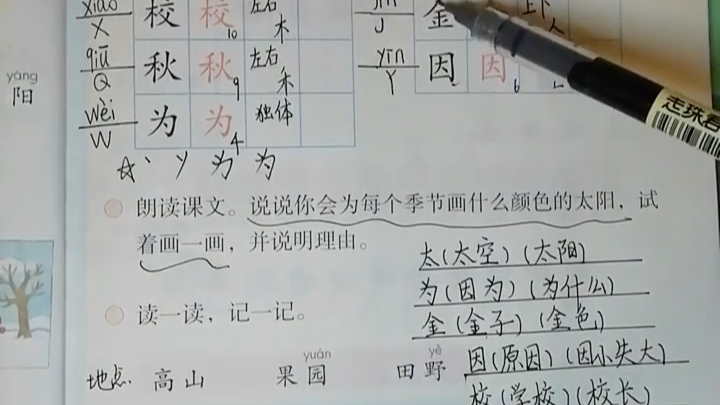 xiào 校 校 左右
X 10 木
qiū 秋 秋 左右
Q 9 禾
wèi 为 为 独体
W 4
金
J
yīn 因 因
Y 6
丶 丷 为 为
yáng
阳
朗读课文。说说你会为每个季节画什么颜色的太阳，试
着画一画，并说明理由。
太(太空)(太阳)
为(因为)(为什么)
读一读，记一记。
金(金子)(金色)
因(原因)(因小失大)
yuán yě
地点 高山 果园 田野
校(学校)(校长)
走珠